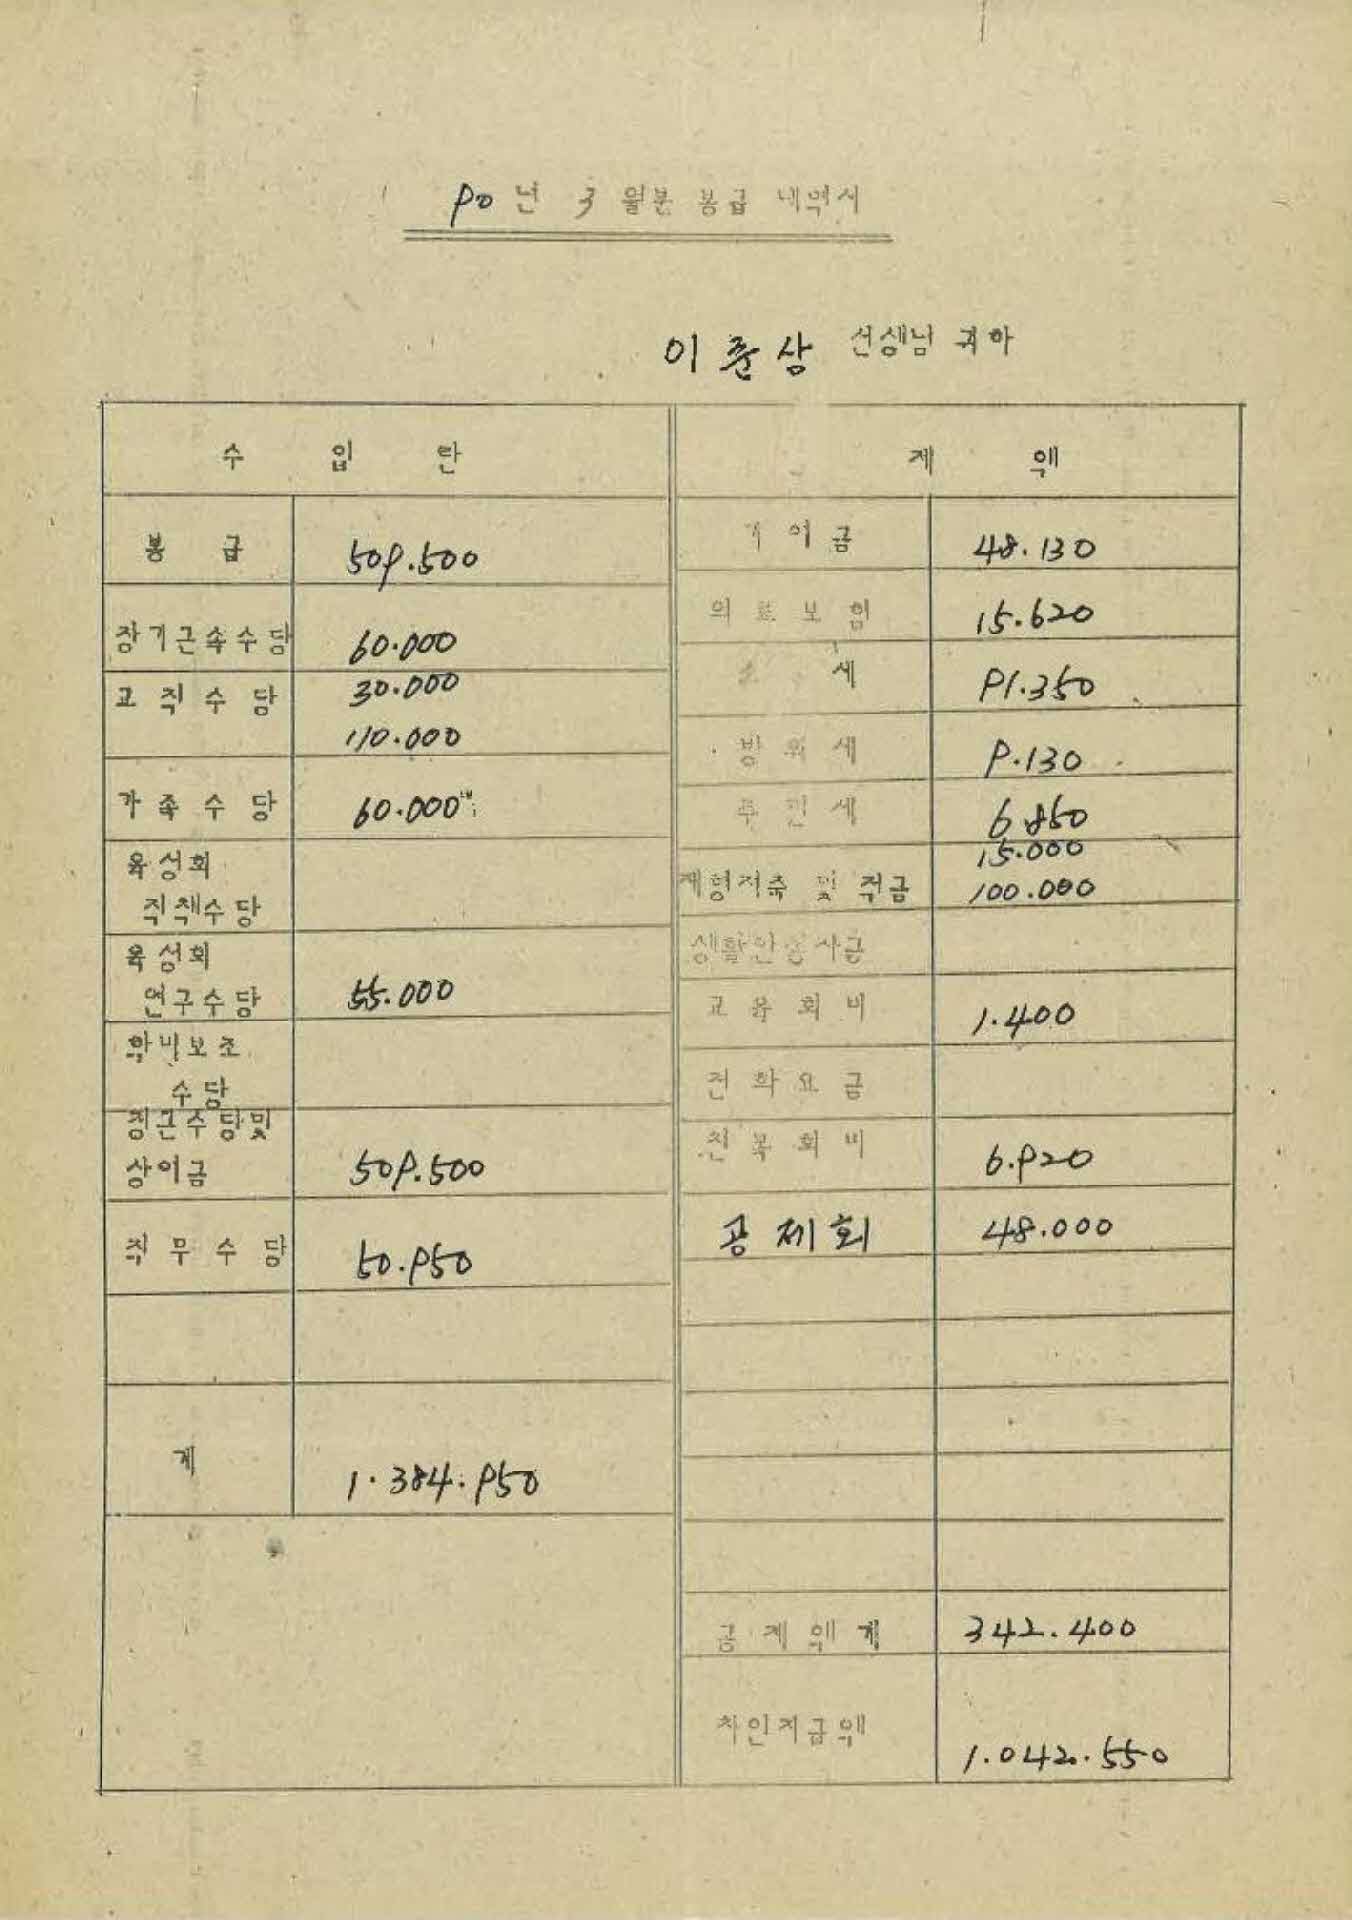 90년 3월분 봉급 내역서
이준상 선생님 귀하
수 입 란
봉 급 509.500
장기근속수당 60.000
교직수당 30.000
110.000
가족수당 60.000
육성회
직책수당
육성회
연구수당 55.000
학비보조
수당
정근수당및
상여금 509.500
직무수당 50.950
계 1.384.950
제 액
기여금 48.130
의료보험 15.620
세 91.350
방위세 9.130
주민세 6.850
15.000
재형저축 및 적금 100.000
생활안정자금
교육회비 1.400
전화요금
친목회비 6.920
공제회 48.000
공제액계 342.400
차인지급액 1.042.550